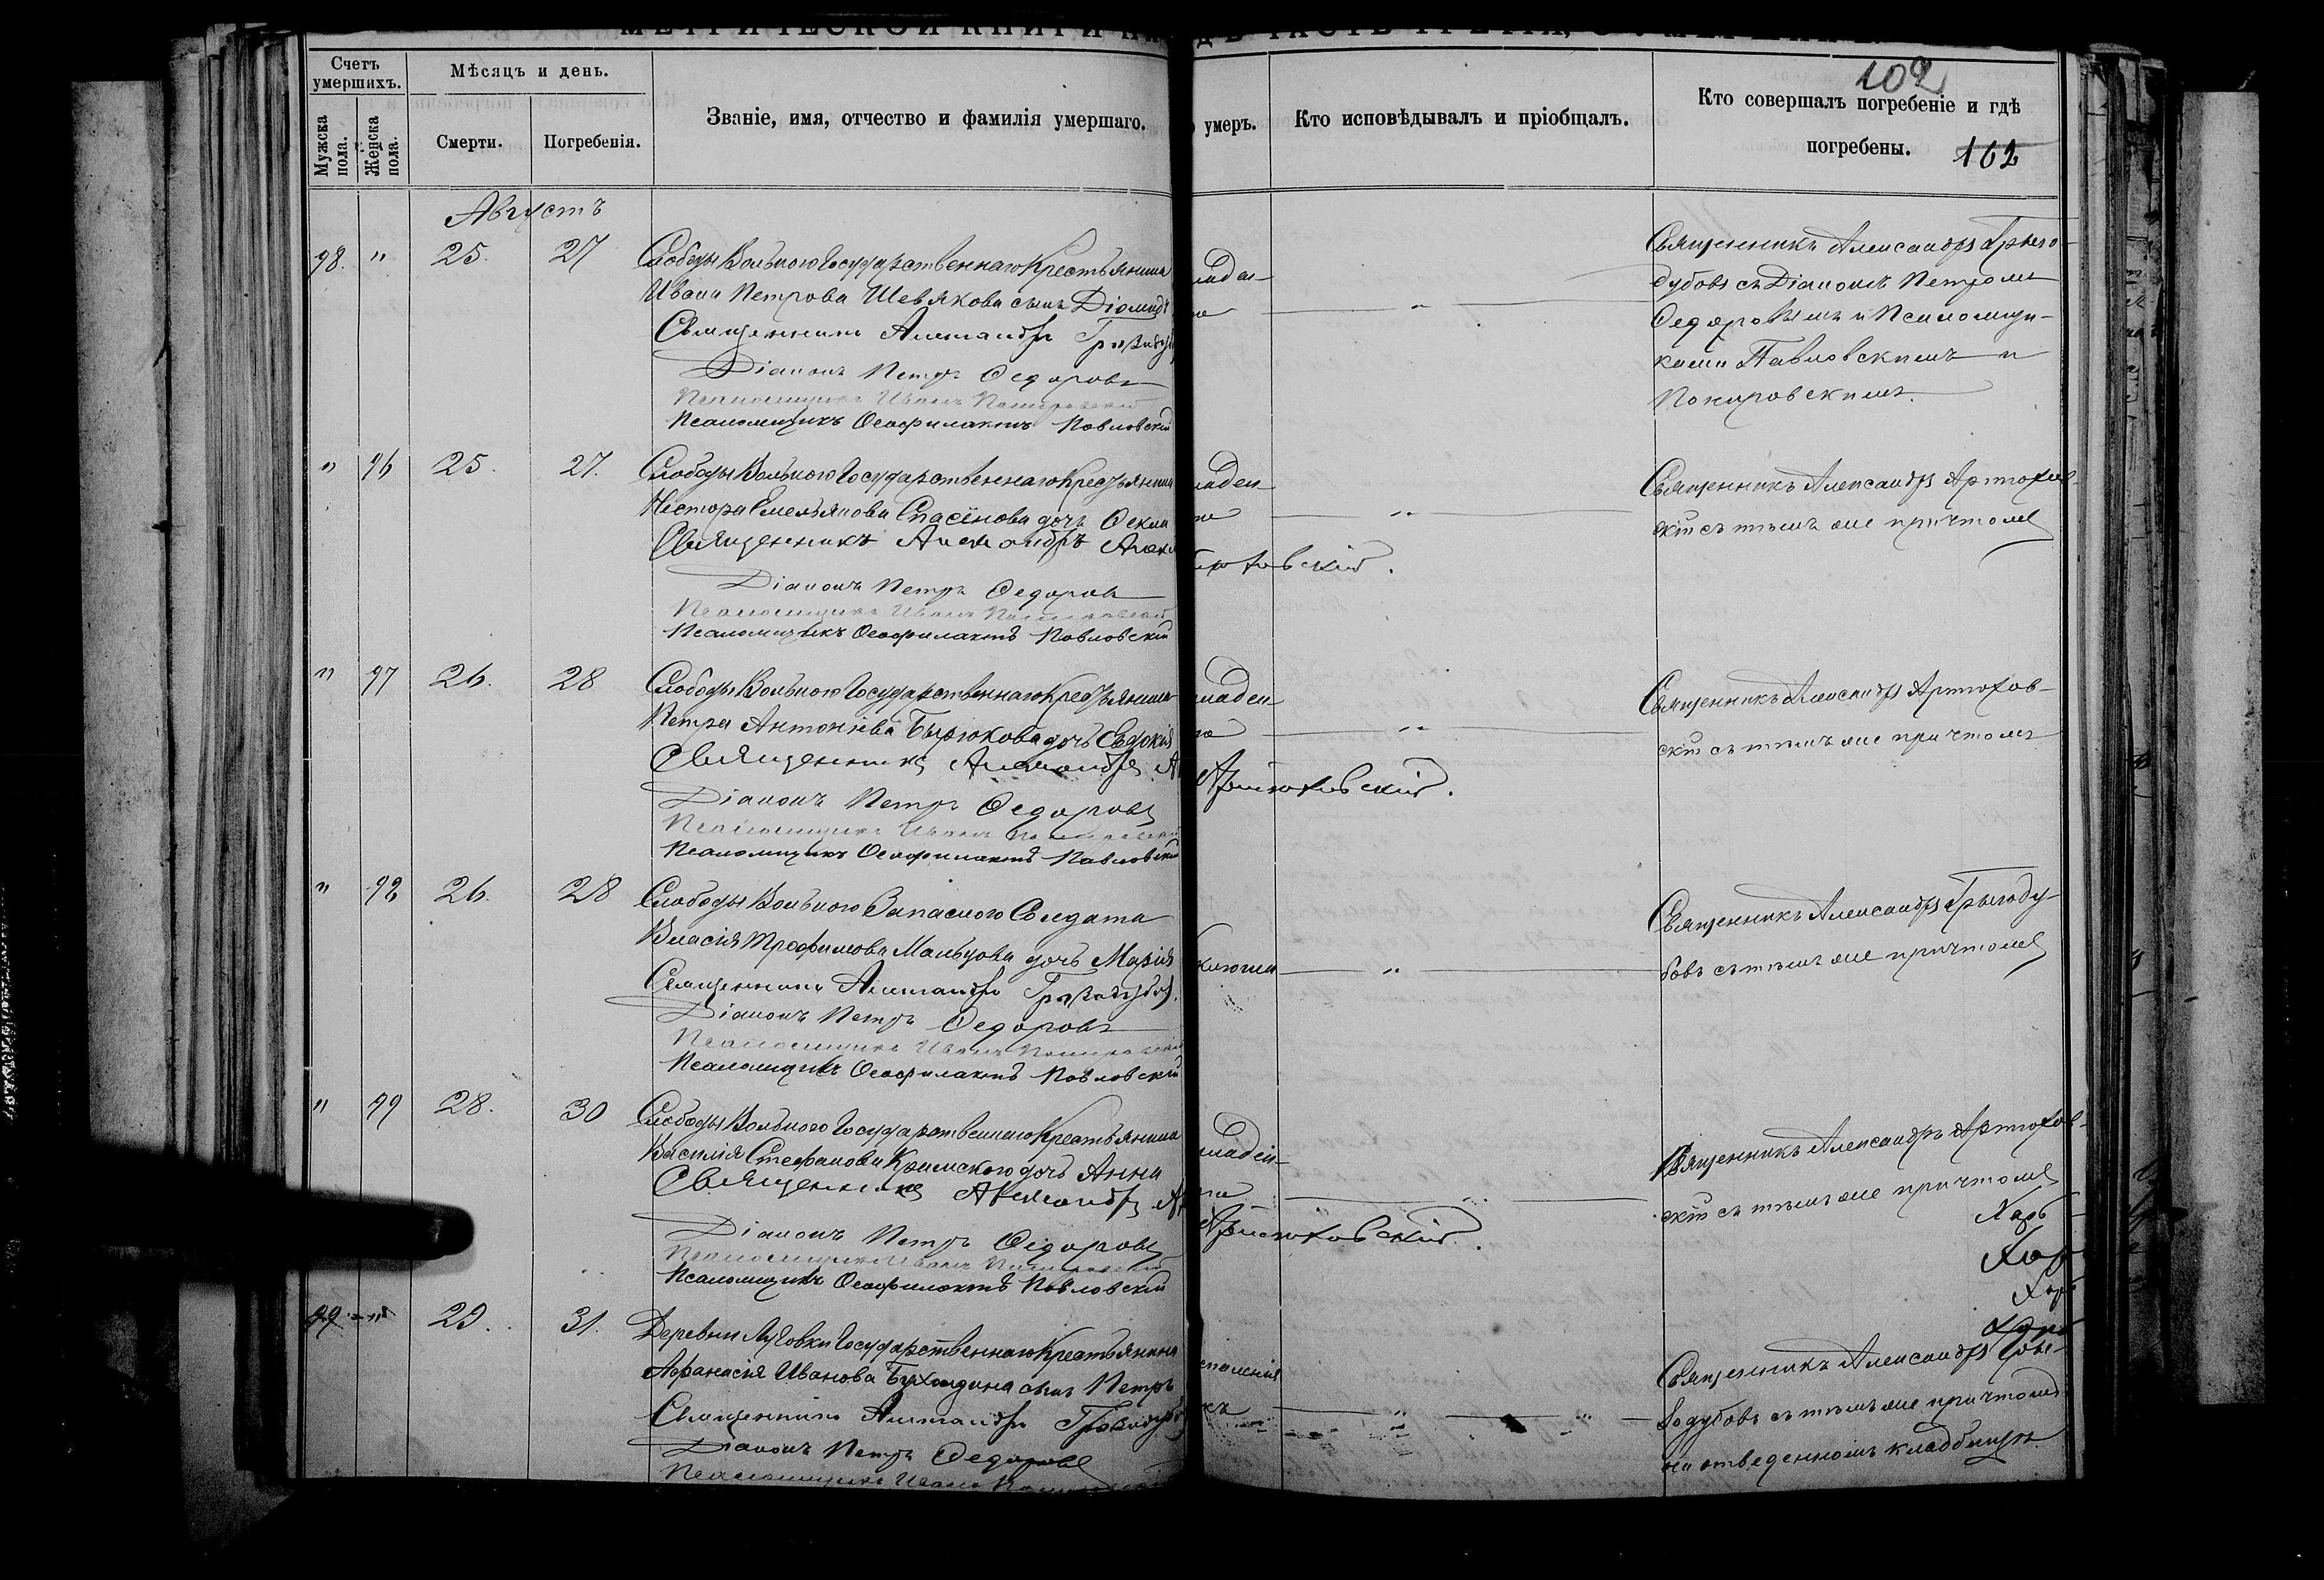 МЕТРИЧЕСКОЙ КНИГИ НА
ЧАСТЬ ТРЕТІЯ, О УМЕРШИХЪ
Счетъ умершихъ.
Мѣсяцъ и день.
Званіе, имя, отчество и фамилія умершаго.
Мужска пола.
Женска пола.
Смерти.
Погребенія.
умеръ.
Кто исповѣдывалъ и пріобщалъ.
Кто совершалъ погребеніе и гдѣ
погребены.
102
102
Августъ
98. " 25. 27
Слободы Вольного Государственнаго Крестьянина
Ивана Петрова Шевякова сынъ Діомидъ
Священникъ Александръ
Діаконъ Петръ Федоровъ
Псаломщикъ Иванъ Покировскій
Псаломщикъ Феофилактъ Павловскій
младен
Священникъ Александръ
дубовъ съ Діакономъ Петромъ
Федоровымъ и Псаломщи-
ками Павловскимъ и
Покировскимъ.
" 96 25. 27.
Слободы Вольного Государственнаго Крестьянина
Нестора Емельянова дочь Фекла
Священникъ Александръ
Діаконъ Петръ Федоровъ
Псаломщикъ Иванъ Покировскій
Псаломщикъ Феофилактъ Павловскій
младен
Священникъ Александръ Артюхов-
скій съ тѣмъ же причтомъ
" 97 26. 28
Слободы Вольного Государственнаго Крестьянина
Петра Антоніева Бирюкова дочь Евдокія
Священникъ Александръ
Артюховскій.
Діаконъ Петръ Федоровъ
Псаломщикъ Иванъ Покировскій
Псаломщикъ Феофилактъ Павловскій
младен
Священникъ Александръ Артюхов-
скій съ тѣмъ же причтомъ
" 98 26. 28
Слободы Вольного Запасного Солдата
Власія Трофимова Мальцова дочь Марія
Священникъ Александръ
Діаконъ Петръ Федоровъ
Псаломщикъ Иванъ Покировскій
Псаломщикъ Феофилактъ Павловскій
Священникъ Александръ
бовъ съ тѣмъ же причтомъ
" 99 28. 30
Слободы Вольного Государственнаго Крестьянина
Василія Стефанова Кримского дочь Анна
Священникъ Александръ
Артюховскій.
Діаконъ Петръ Федоровъ
Псаломщикъ Иванъ Покировскій
Псаломщикъ Феофилактъ Павловскій
младен
Священникъ Александръ Артюхов-
скій съ тѣмъ же причтомъ
99 " 29. 31.
Деревни Луговки Государственнаго Крестьянина
Афанасія Иванова сынъ Петръ
Священникъ Александръ
Діаконъ Петръ Федоровъ
Псаломщикъ Иванъ
Священникъ Александръ
дубовъ съ тѣмъ же причтомъ
на отведенномъ кладбищѣ.